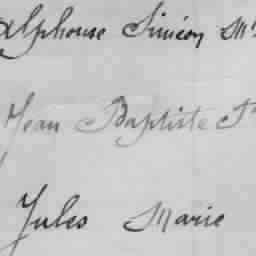 Alphonse Siméon M
Jean Baptiste
Jules Marie